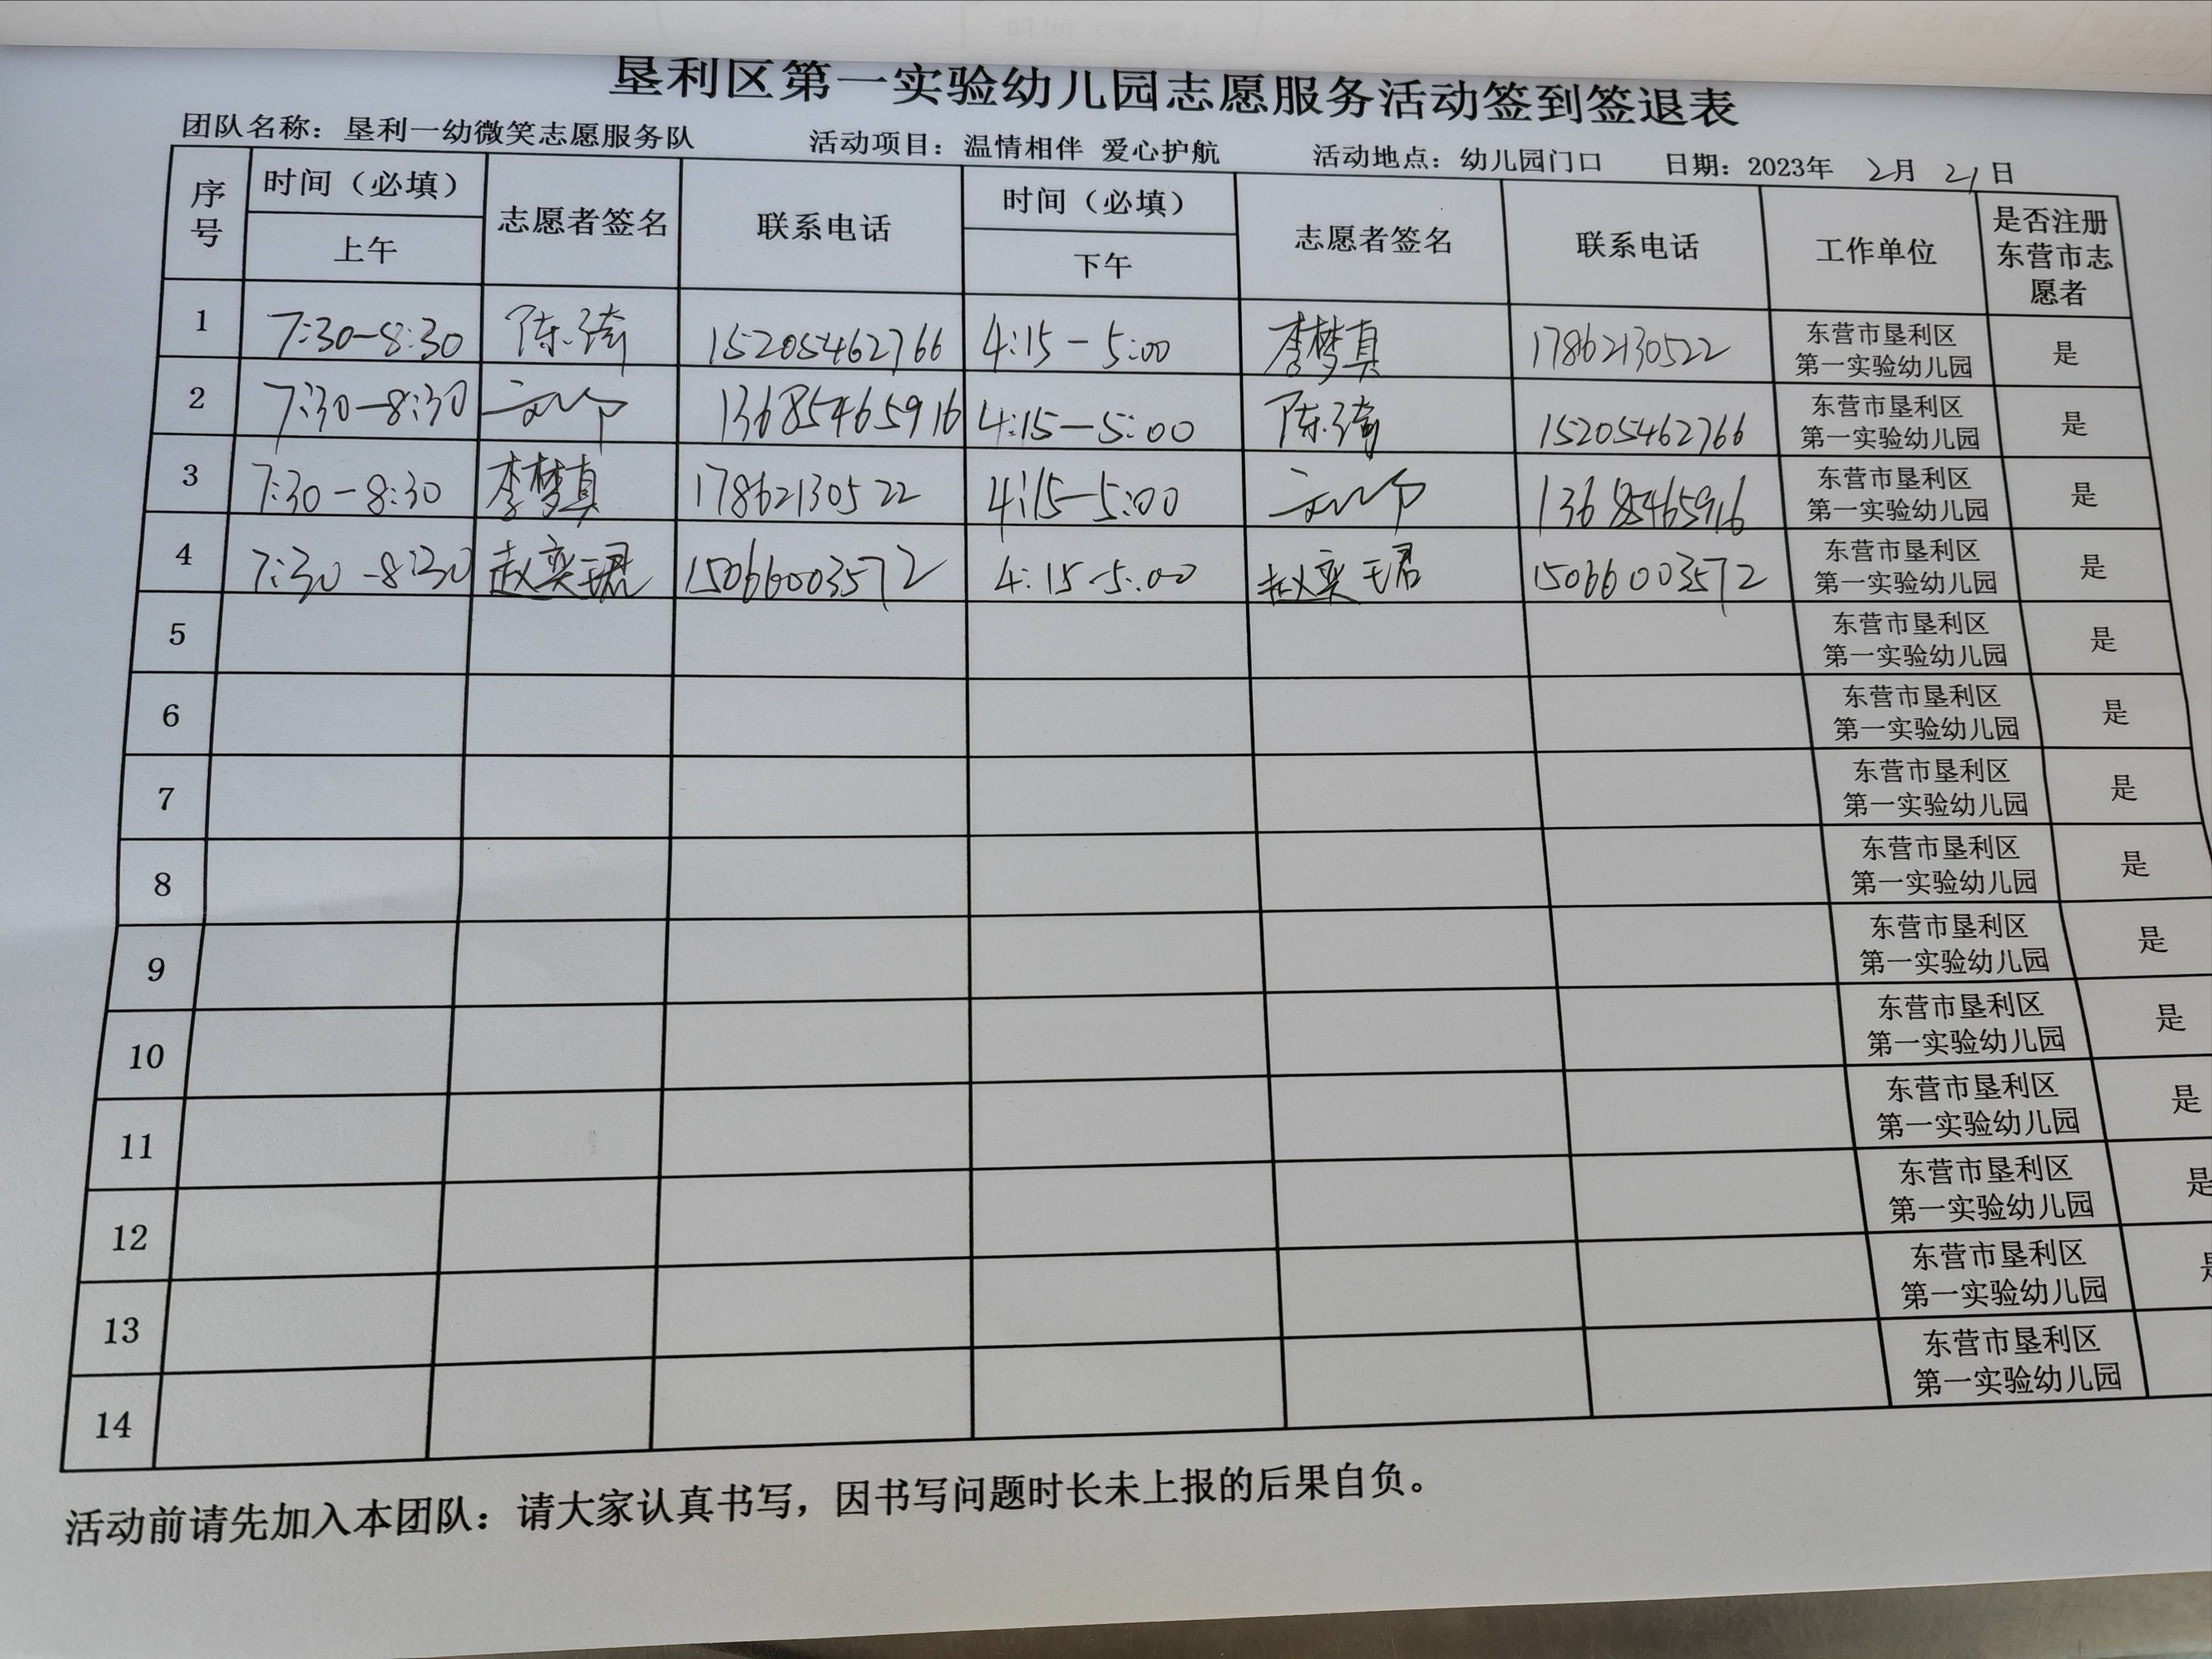 垦利区第一实验幼儿园志愿服务活动签到签退表
团队名称：垦利一幼微笑志愿服务队 活动项目：温情相伴 爱心护航 活动地点：幼儿园门口 日期：2023年 2月 21日
序号 时间（必填） 上午 志愿者签名 联系电话 时间（必填） 下午 志愿者签名 联系电话 工作单位 是否注册东营市志愿者
1 7:30-8:30 陈琦 15205462766 4:15-5:00 李梦真 17862130522 东营市垦利区第一实验幼儿园 是
2 7:30-8:30 13685465916 4:15-5:00 陈琦 15205462766 东营市垦利区第一实验幼儿园 是
3 7:30-8:30 李梦真 17862130522 4:15-5:00 13685465916 东营市垦利区第一实验幼儿园 是
4 7:30-8:30 赵奕珺 15066003572 4:15-5:00 赵奕珺 15066003572 东营市垦利区第一实验幼儿园 是
5 东营市垦利区第一实验幼儿园 是
6 东营市垦利区第一实验幼儿园 是
7 东营市垦利区第一实验幼儿园 是
8 东营市垦利区第一实验幼儿园 是
9 东营市垦利区第一实验幼儿园 是
10 东营市垦利区第一实验幼儿园 是
11 东营市垦利区第一实验幼儿园 是
12 东营市垦利区第一实验幼儿园 是
13 东营市垦利区第一实验幼儿园 是
14 东营市垦利区第一实验幼儿园
活动前请先加入本团队：请大家认真书写，因书写问题时长未上报的后果自负。